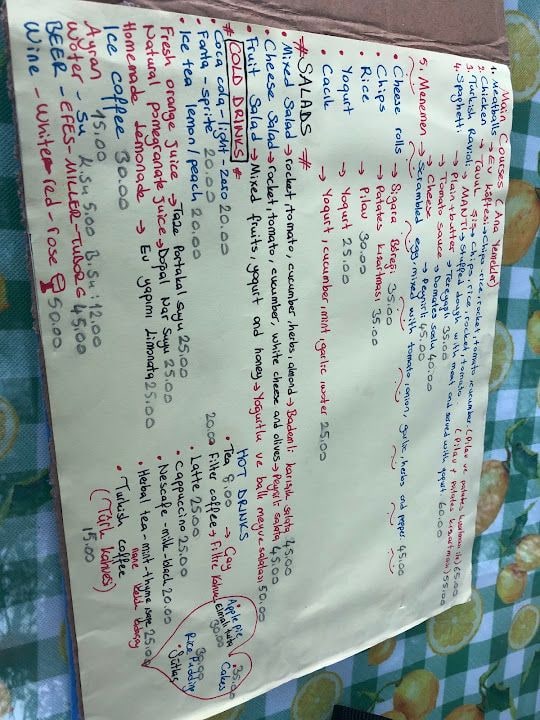 Main Courses (Ana Yemekler)
1. Meatballs → Et köftesi → Chips, rice, rocket, tomato, cucumber (Pilav ve patates kızartması ile) 65.00
2. Chicken → Tavuk şiş → Chips, rice, rocket, tomato (Pilav + patates kızartması) 55.00
3. Turkish Ravioli → MANTI → stuffed dough with meat and served with yogurt 60.00
4. Spaghetti → Plain, butter → Tereyağlı 35.00
→ Tomato sauce → Domates soslu 40.00
→ Cheese → Peynirli 45.00
5. Menemen → Scrambled egg mixed with tomato, onion, garlic, herbs and pepper 45.00
• Cheese rolls → Sigara Böreği 35.00
• Chips → Patates kızartması 35.00
• Rice → Pilav 30.00
• Yogurt → Yogurt 25.00
• Cacık → Yogurt, cucumber, mint, garlic, water 25.00
# SALADS #
• Mixed Salad → rocket, tomato, cucumber, herbs, almond → Bademli karışık salata 45.00
• Cheese Salad → rocket, tomato, cucumber, white cheese and olives → Peynirli salata 45.00
• Fruit Salad → Mixed fruits, yogurt and honey → Yogurtlu ve ballı meyve salatası 50.00
# COLD DRINKS #
• Coca cola - light - zero 20.00
• Fanta - sprite 20.00
• Ice tea lemon/peach 20.00
Fresh orange juice → Taze Portakal Suyu 25.00
Natural pomegranate Juice → Doğal Nar Suyu 25.00
Homemade Lemonade → Ev yapımı Limonata 25.00
Ice coffee 30.00
Ayran 15.00
Water - Su K.Su 5.00 B.Su: 12.00
BEER - EFES - MILLER - TUBORG 45.00
Wine - White - red - rose 50.00
HOT DRINKS
• Tea 8.00 → Çay
20.00 Filter coffee → Filtre kahve
• Latte 25.00
• Cappuccino 25.00
• Nescafe - milk - black 20.00
• Herbal tea - mint - thyme - sage 25.00
nane kekik
• Turkish coffee
(Türk kahvesi)
15.00
Cakes
35.00
Apple pie
Elmalı turta
30.00
Rice Pudding
• Sütlaç